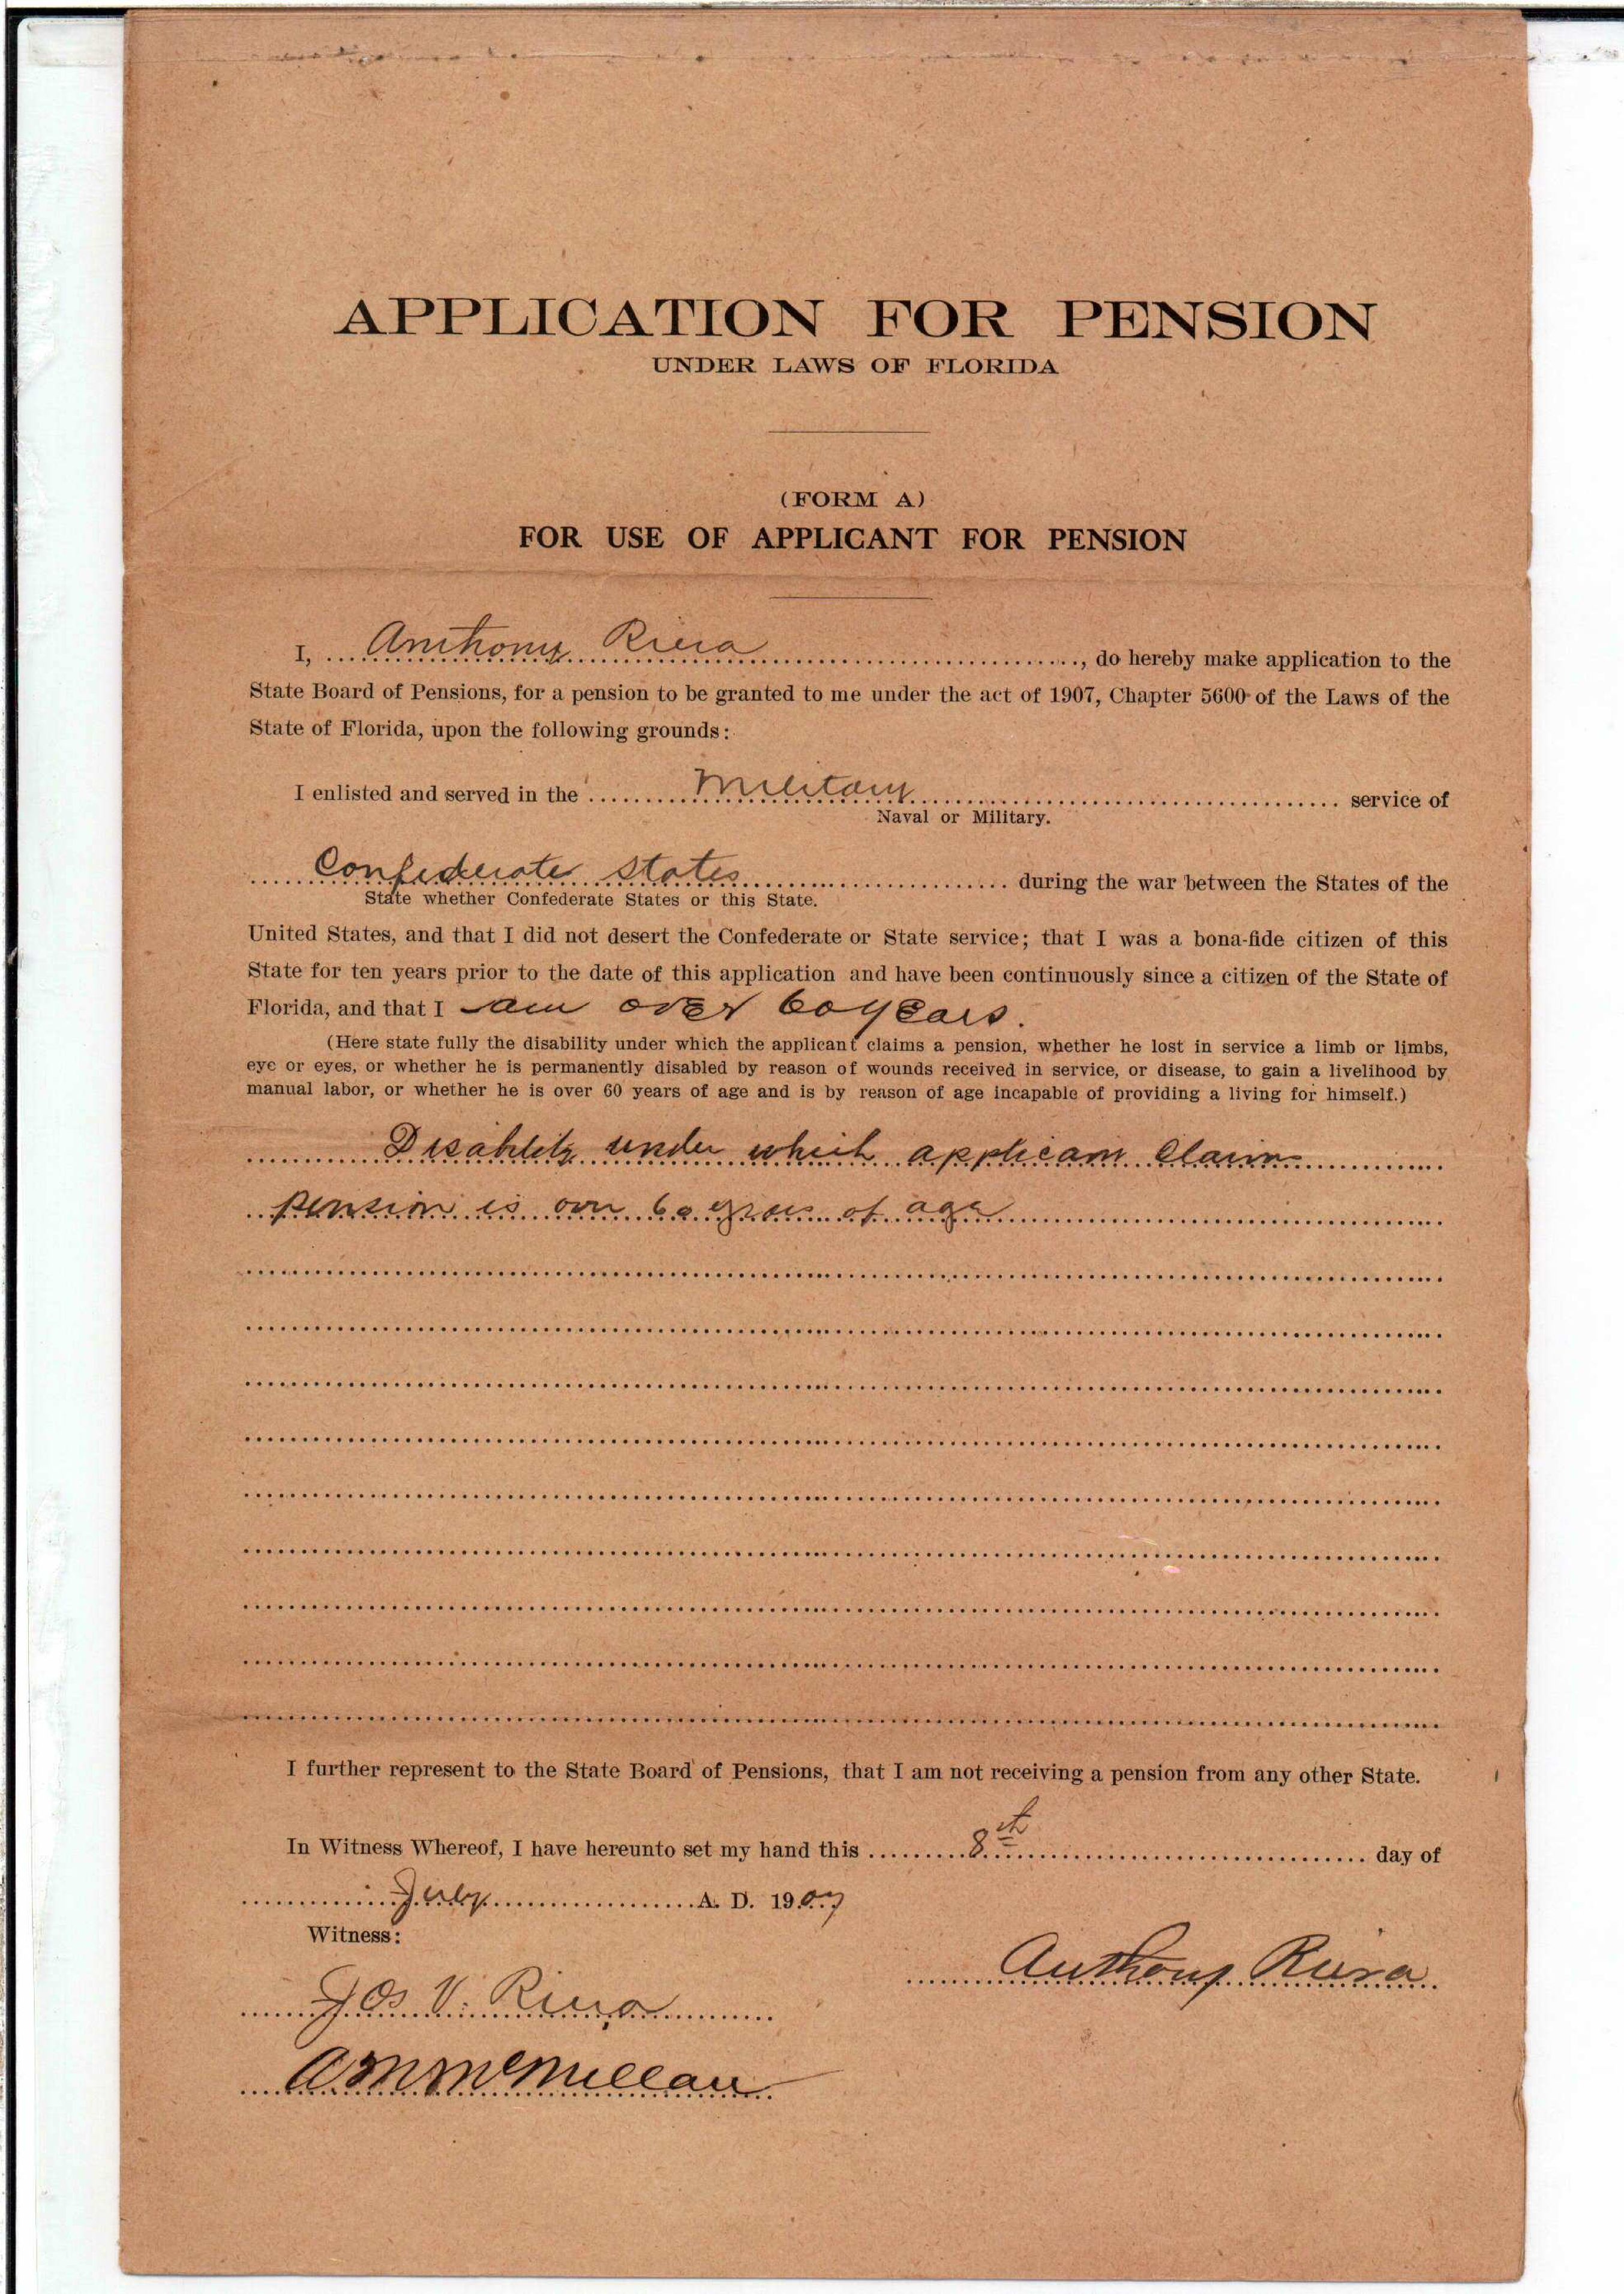 APPLICATION FOR PENSION
UNDER LAWS OF FLORIDA
(FORM A)
FOR USE OF APPLICANT FOR PENSION
I, Anthony Riera, do hereby make application to the
State Board of Pensions, for a pension to be granted to me under the act of 1907, Chapter 5600 of the Laws of the
State of Florida, upon the following grounds:
I enlisted and served in the Military service of
Naval or Military.
Confederate States during the war between the States of the
State whether Confederate States or this State.
United States, and that I did not desert the Confederate or State service; that I was a bona-fide citizen of this
State for ten years prior to the date of this application and have been continuously since a citizen of the State of
Florida, and that I am over 60 years.
(Here state fully the disability under which the applicant claims a pension, whether he lost in service a limb or limbs,
eye or eyes, or whether he is permanently disabled by reason of wounds received in service, or disease, to gain a livelihood by
manual labor, or whether he is over 60 years of age and is by reason of age incapable of providing a living for himself.)
Disability under which applicant claims
pension is over 60 years of age
I further represent to the State Board of Pensions, that I am not receiving a pension from any other State.
In Witness Whereof, I have hereunto set my hand this 8th day of
July A. D. 1907
Witness:
Anthony Riera
Jos V. Riera
A M McMillan